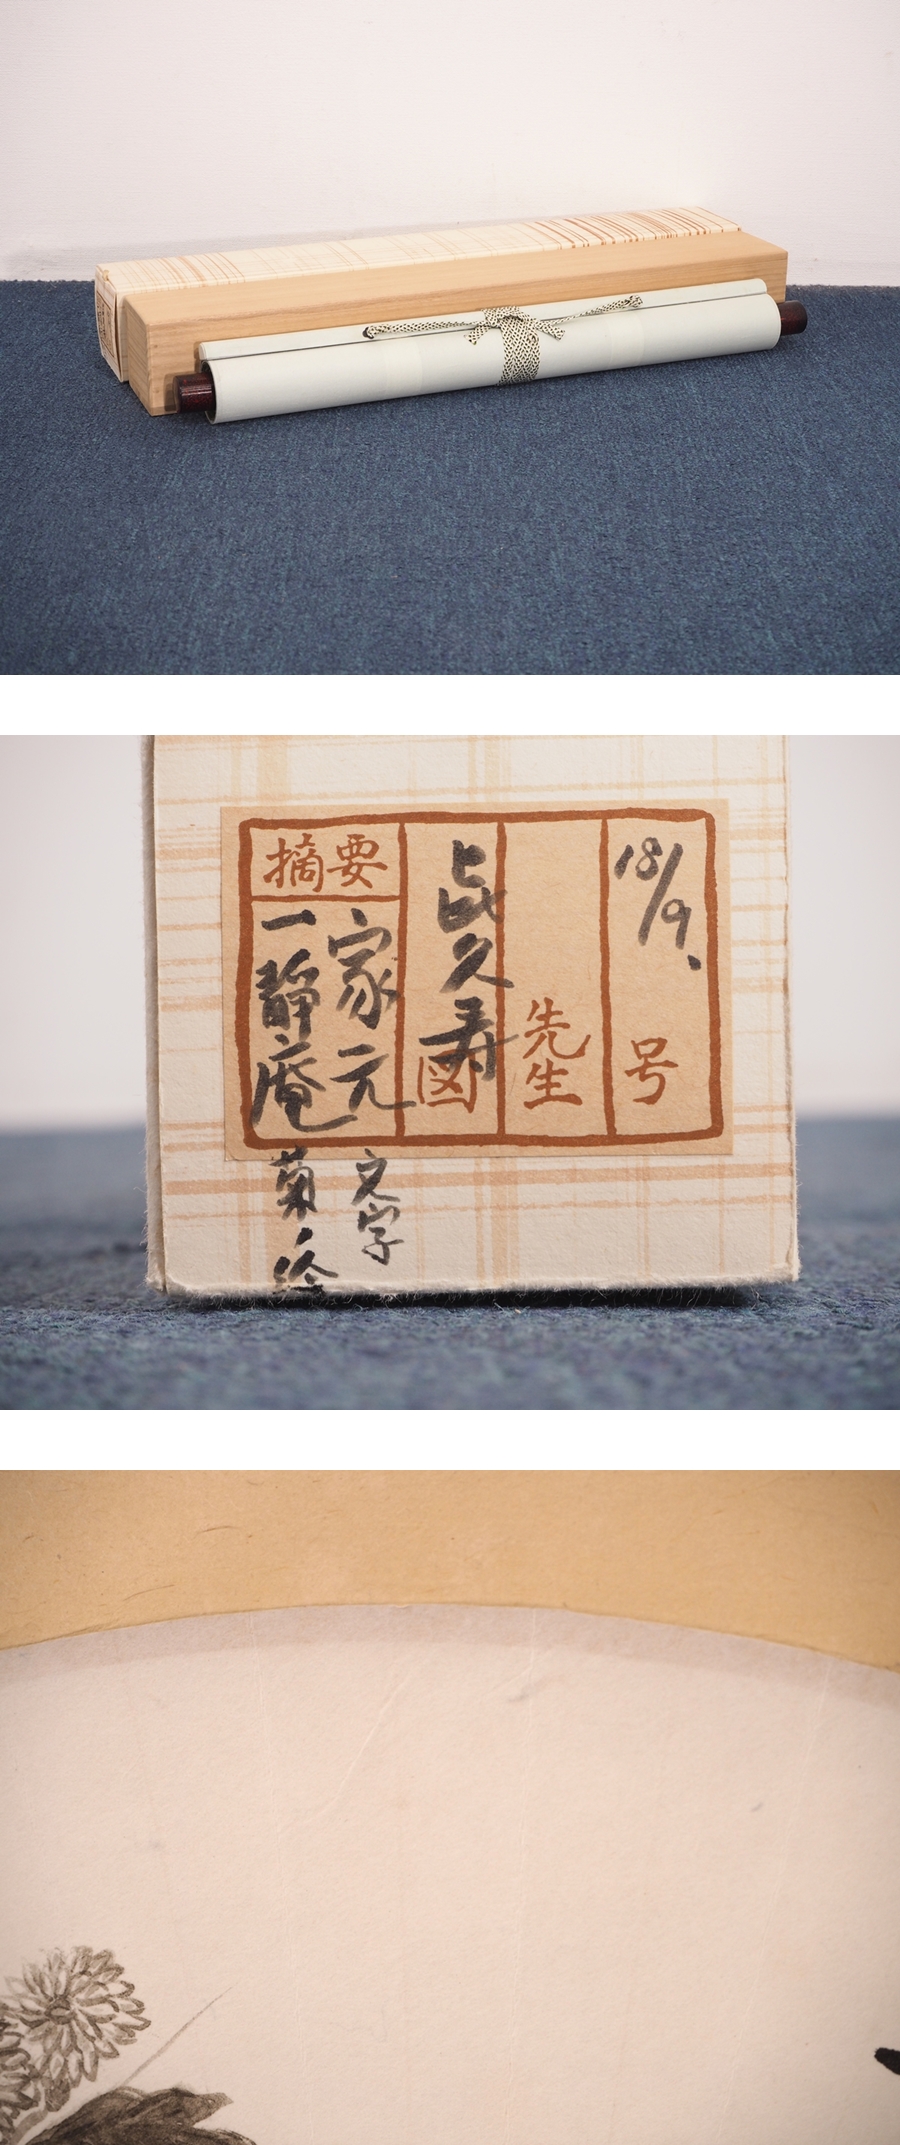 18/9. 号
先生
久寿 図
摘要
家元 文字
一静庵 菊絵